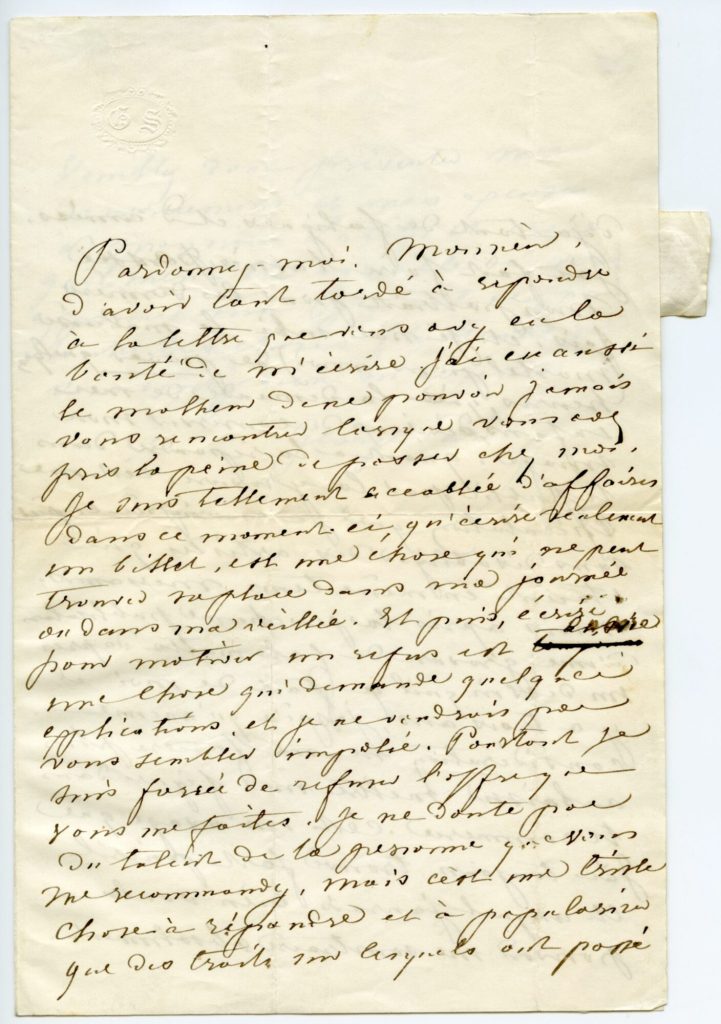 GS
Pardonnez-moi, Monsieur,
d'avoir tant tardé à répondre
à la lettre que vous avez eu la
bonté de m'écrire j'ai eu aussi
le malheur de ne pouvoir jamais
vous rencontrer lorsque vous avez
pris la peine de passer chez moi.
Je suis tellement accablée d'affaires
dans ce moment-ci, qu'écrire seulement
un billet, est une chose qui ne peut
trouver sa place dans ma journée
ou dans ma veillée. Et puis, écrire
pour motiver un refus est encore
une chose qui demande quelques
explications, et je ne voudrais pas
vous sembler impolie. Pourtant je
suis forcée de refuser l'offre que
vous me faites. Je ne doute pas
du talent de la personne que vous
me recommandez, mais c'est une triste
chose à répandre et à populariser
que des traits sur lesquels ont passé